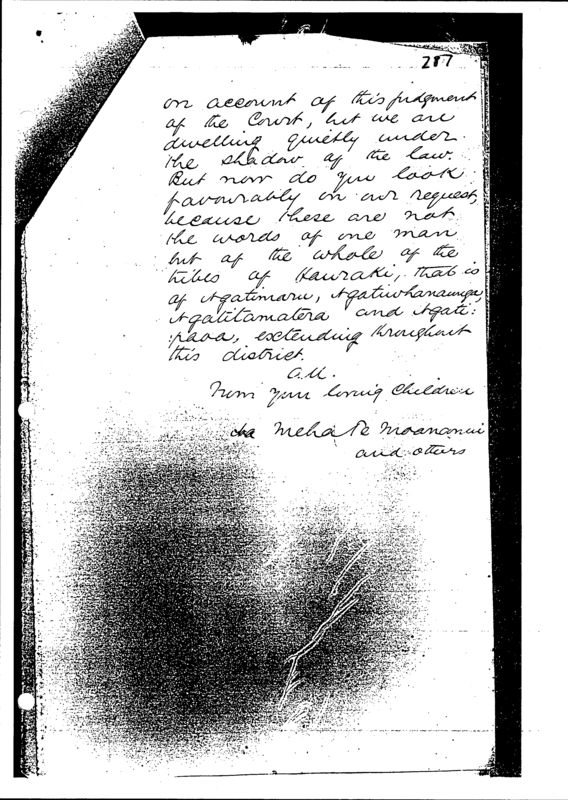 287
on account of this judgment
of the Court, but we are
dwelling quietly under
the shadow of the law.
But now do you look
favourably on our request,
because these are not
the words of one man
but of the whole of the
tribes of Hauraki, that is
of Ngatimaru, Ngatiwhanaunga,
Ngatitamatera and Ngati:
:paoa, extending throughout
this district.
From your loving children
Meha Te Moananui
and others